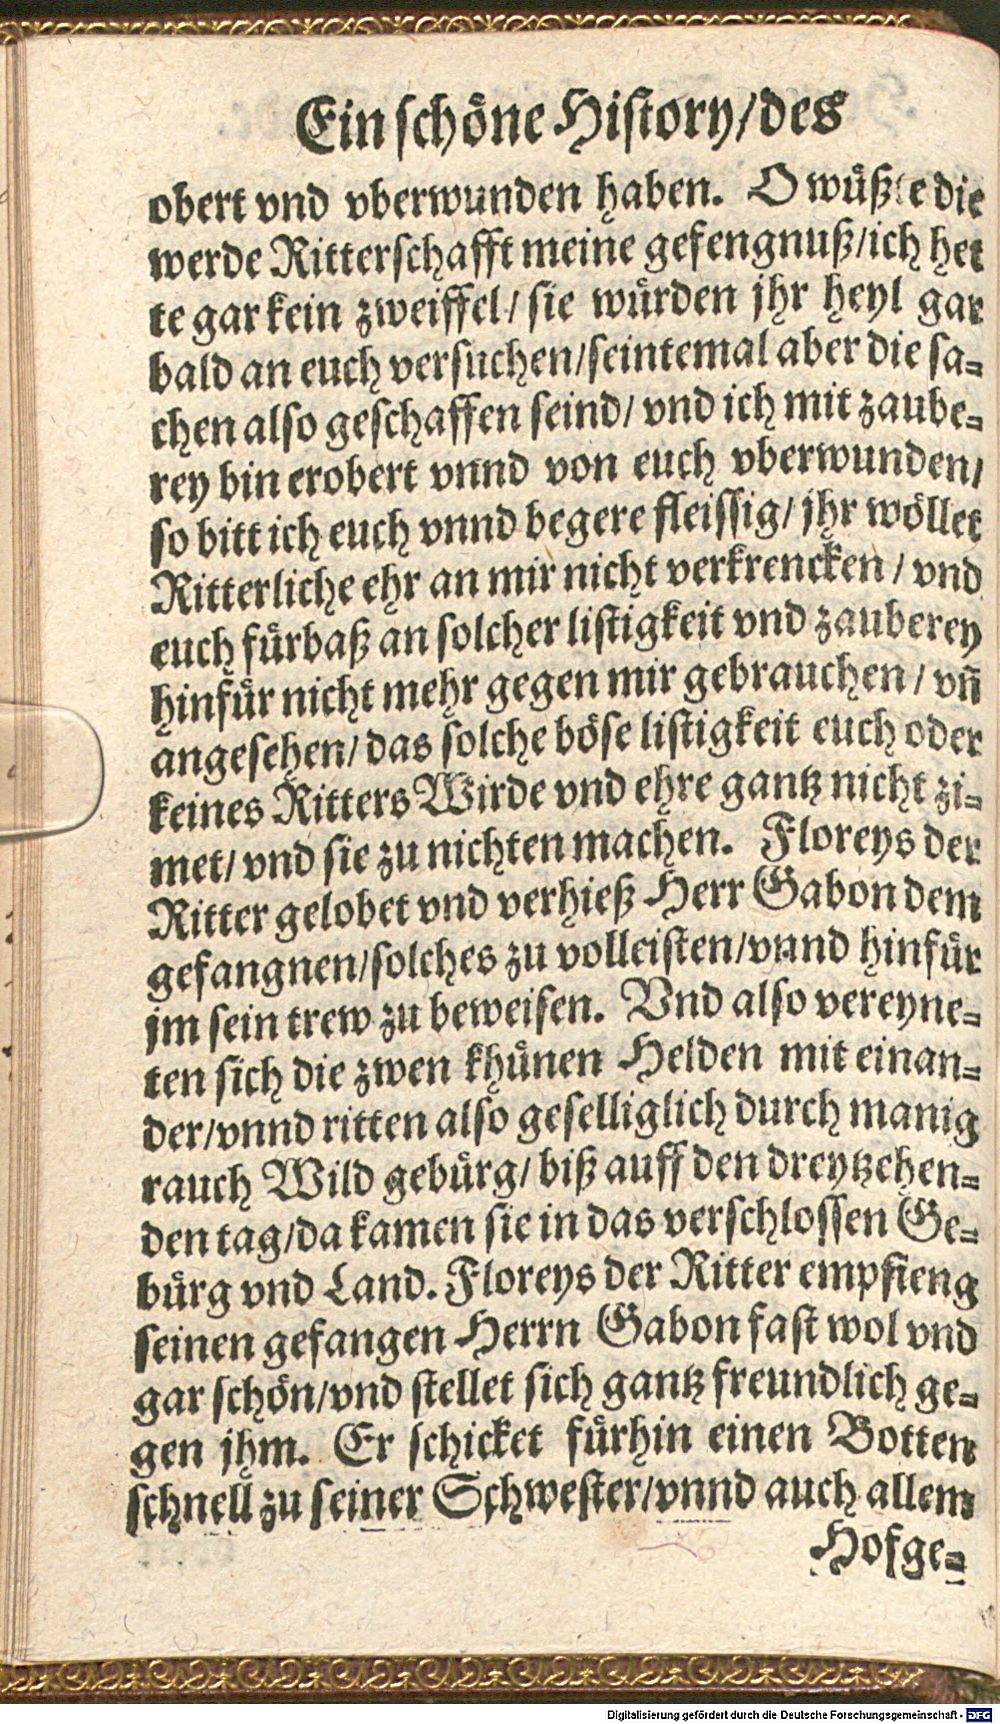 Ein schöne History/des
obert vnd vberwunden haben. O wüßte die
werde Ritterschafft meine gefengnuß/ich het
te gar kein zweiffel/ sie würden jhr heyl gar
bald an euch versuchen/seintemal aber die sa-
chen also geschaffen seind/ vnd ich mit zaube-
rey bin erobert vnnd von euch vberwunden/
so bitt ich euch vnnd begere fleissig/ jhr wöllet
Ritterliche ehr an mir nicht verkrencken / vnd
euch fürbaß an solcher listigkeit vnd zauberey
hinfür nicht mehr gegen mir gebrauchen / vñ
angesehen/ das solche böse listigkeit euch oder
keines Ritters Wirde vnd ehre gantz nicht zi-
met/ vnd sie zu nichten machen. Floreys der
Ritter gelobet vnd verhieß Herr Gabon dem
gefangnen/solches zu volleisten/vnnd hinfür
jm sein trew zu beweisen. Vnd also vereyne-
ten sich die zwen khünen Helden mit einan-
der/vnnd ritten also geselliglich durch manig
rauch Wild gebürg/ biß auff den dreytzehen-
den tag/da kamen sie in das verschlossen Ge-
bürg vnd Land. Floreys der Ritter empfieng
seinen gefangen Herrn Gabon fast wol vnd
gar schön/vnd stellet sich gantz freundlich ge-
gen jhm. Er schicket fürhin einen Botten
schnell zu seiner Schwester/vnnd auch allem
Hofge-
Digitalisierung gefördert durch die Deutsche Forschungsgemeinschaft - DFG